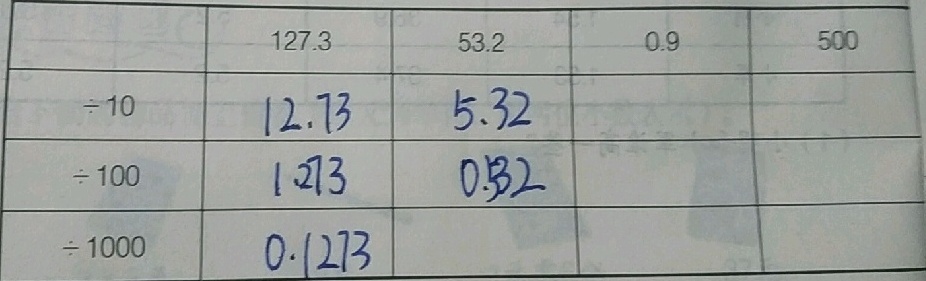 127.3 53.2 0.9 500
÷10 12.73 5.32
÷100 1.273 0.532
÷1000 0.1273